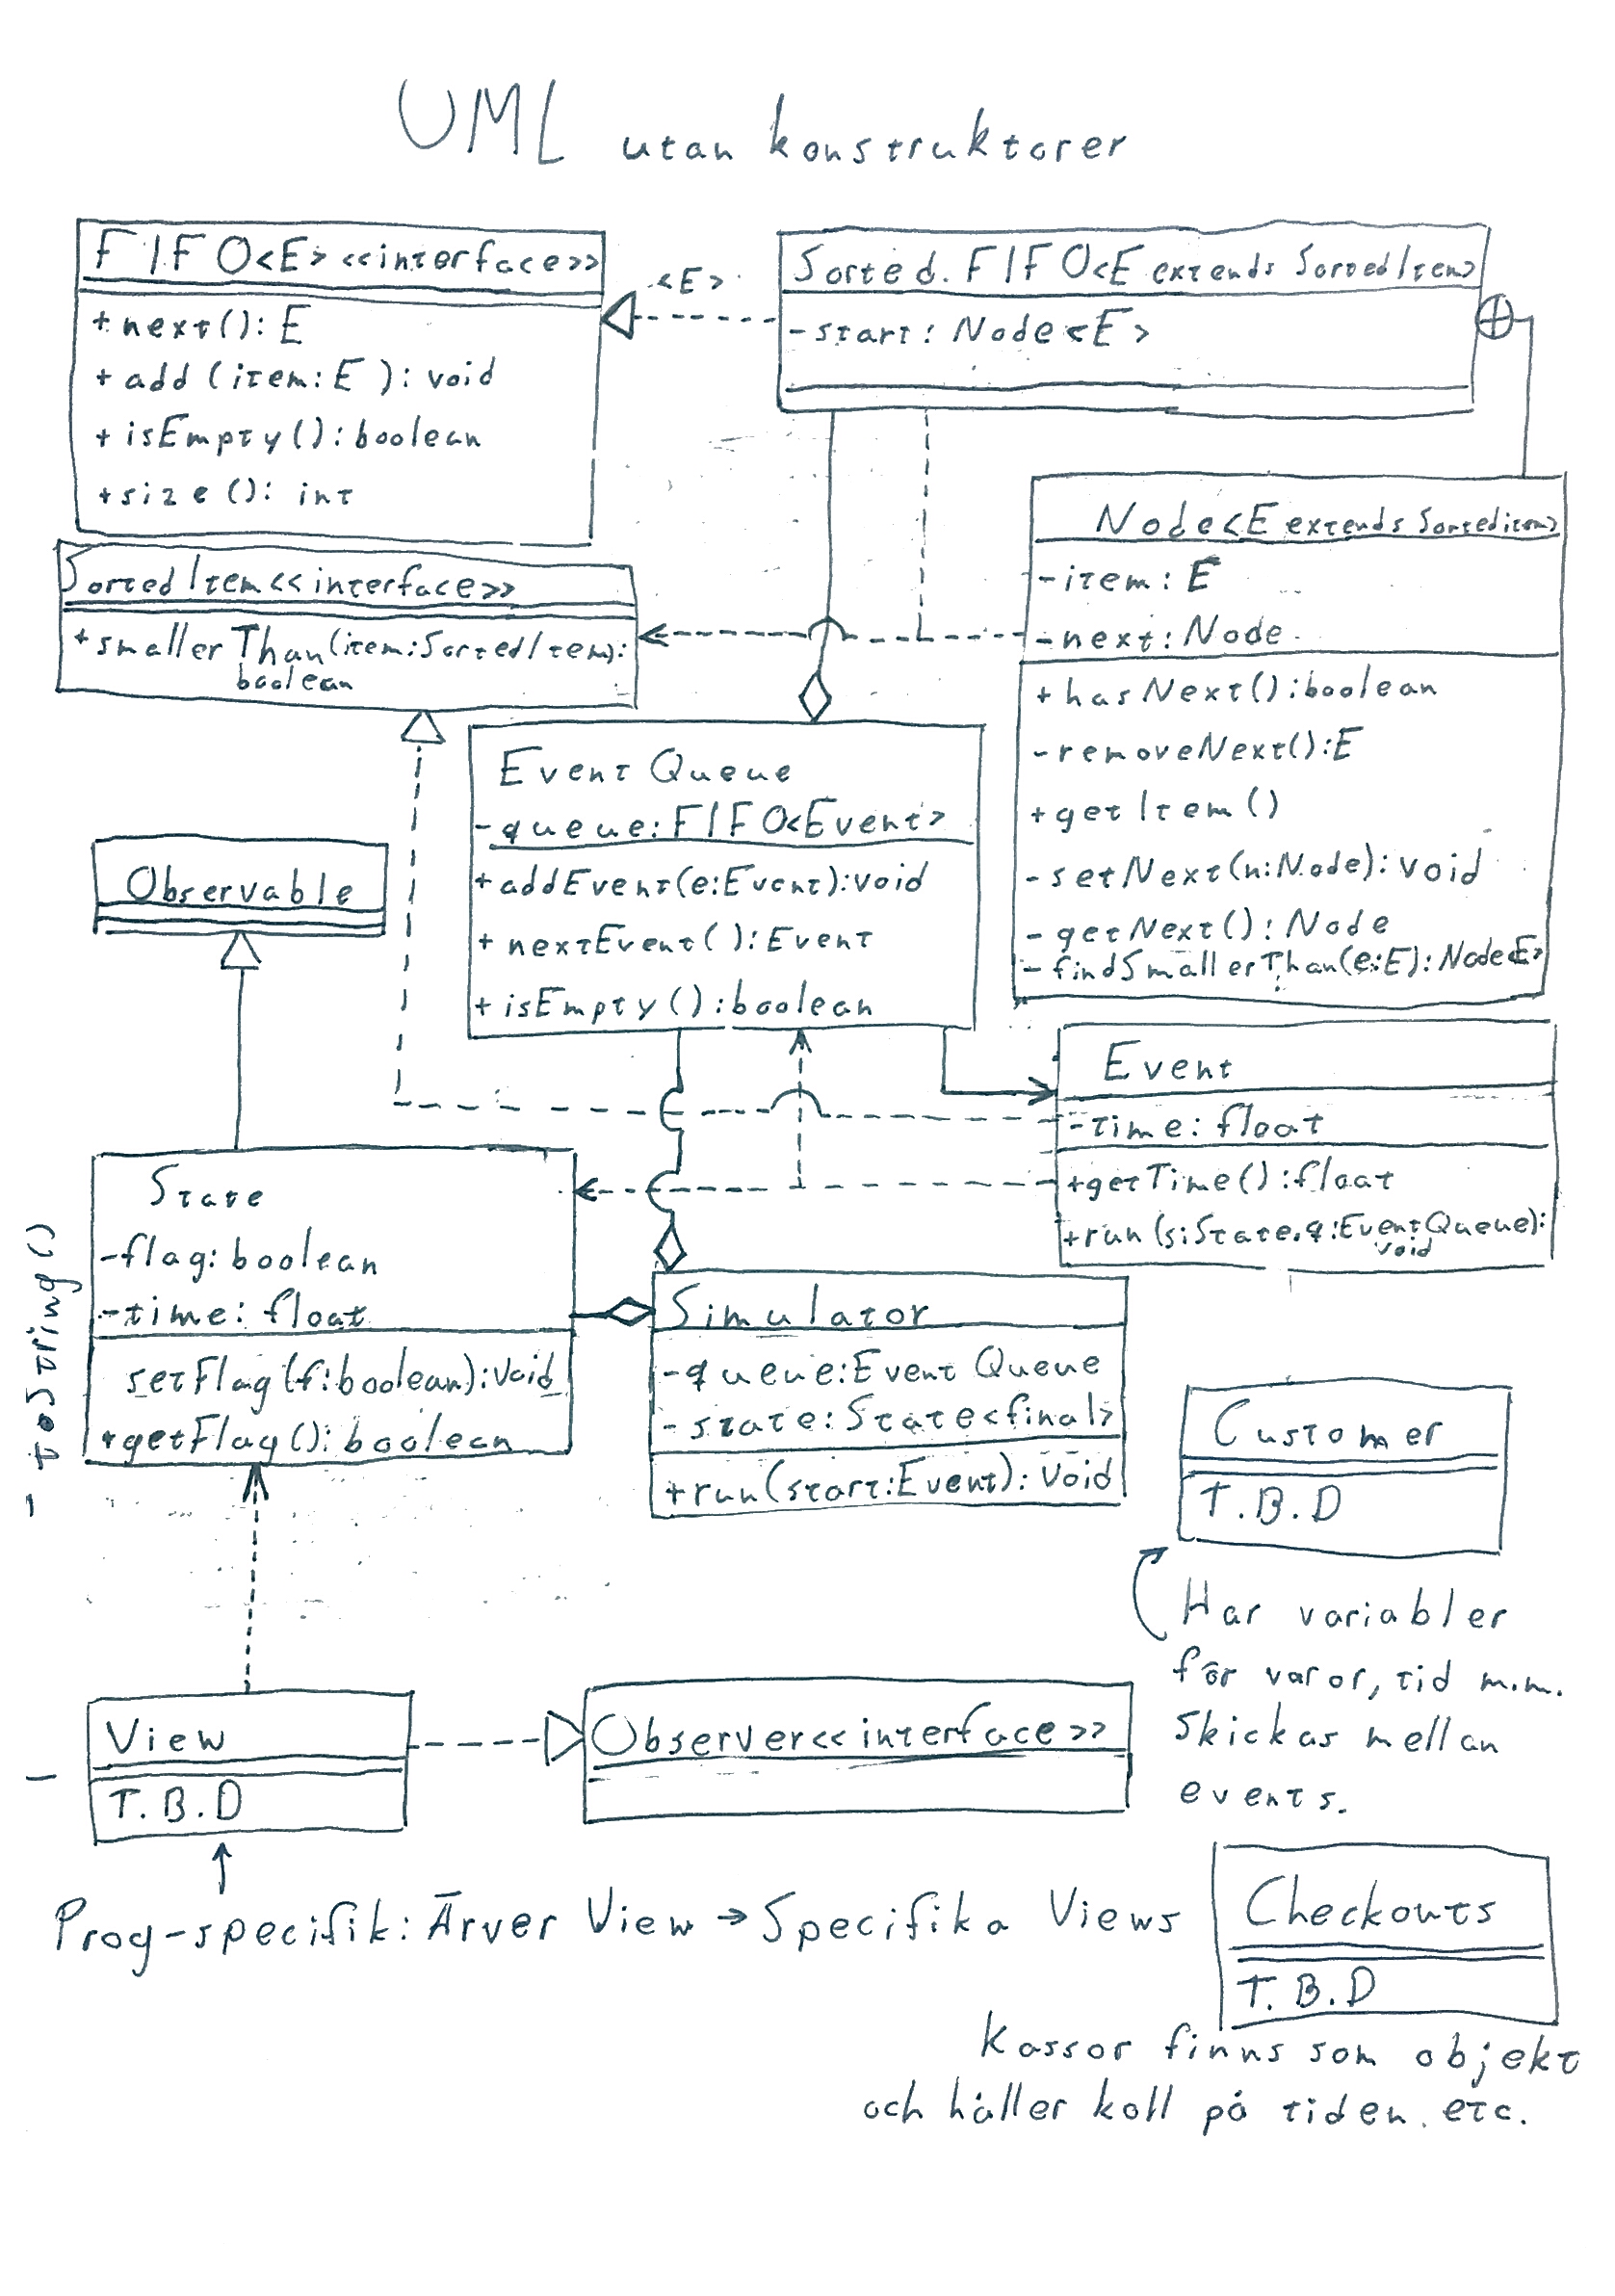 UML utan konstruktorer
FIFO<E> <<interface>>
+next(): E
+ add (item: E ): void
+ isEmpty(): boolean
+size(): int
<E>
Sorted.FIFO<E extends SortedItem>
-start: Node<E>
Node<E extends Sorteditem>
-item: E
-next: Node
+hasNext(): boolean
-removeNext():E
+getItem()
-setNext(n:Node): void
-getNext(): Node
-findSmallerThan(e:E): Node<E>
SortedItem<<interface>>
+smallerThan(item:SortedItem):
boolean
EventQueue
-queue: FIFO<Event>
+addEvent(e:Event):void
+nextEvent(): Event
+isEmpty():boolean
Observable
Event
-time: float
+getTime():float
+run(s:State,q:EventQueue):
void
State
-flag: boolean
-time: float
setFlag(f:boolean):void
+getFlag(): boolean
- toString()
Simulator
-queue:EventQueue
-state:State<final>
+run(start:Event): void
Customer
T.B.D
Har variabler
för varor, tid m.m.
Skickas mellan
events.
View
T.B.D
Observer<<interface>>
Prog-specifik: Ärver View → Specifika Views
Checkouts
T.B.D
Kassor finns som objekt
och håller koll på tiden. etc.